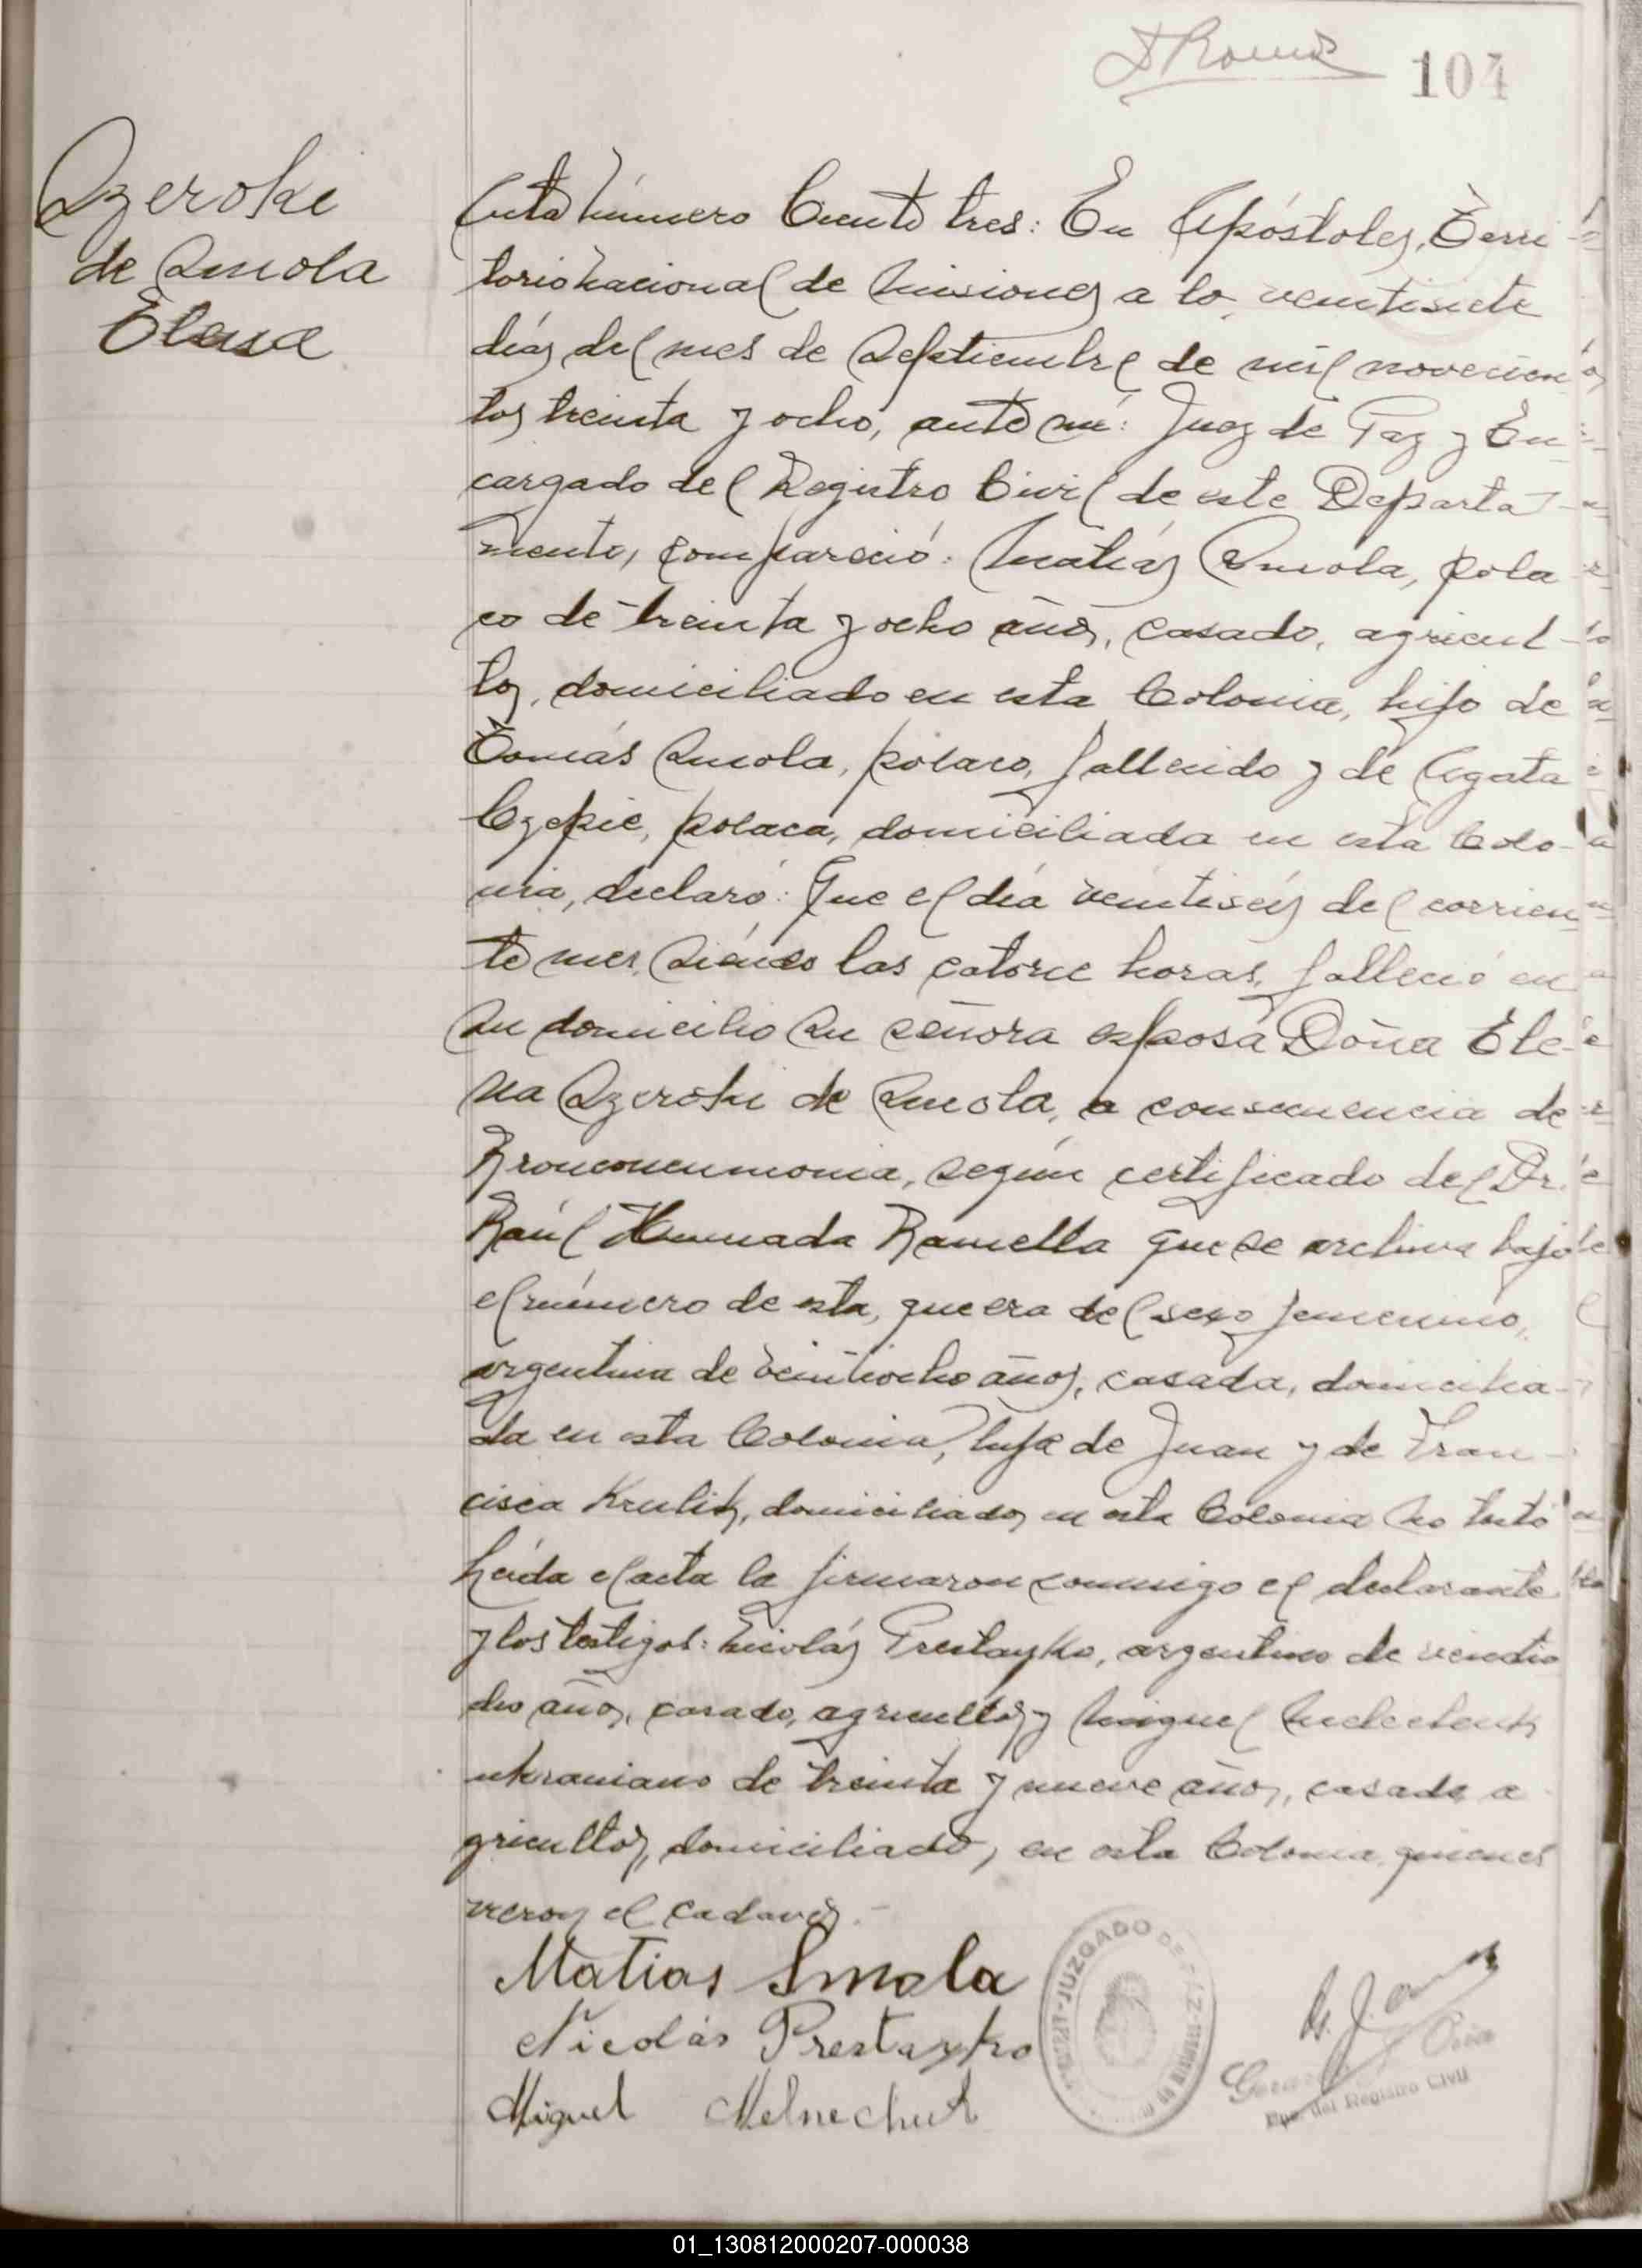 104
Szeroki
de Smola
Elena
Acta número Ciento tres: En Apóstoles, Terri
torio nacional de Misiones a lo, veintisiete
días del mes de Septiembre de mil novecien
tos treinta y ocho, ante mí: Juez de Paz y En
cargado del Registro Civil de este Departa-
mento, compareció: Matías Smola, pola
co de treinta y ocho años, casado, agricul
tor, domiciliado en esta Colonia, hijo de
Tomás Smola, polaco, fallecido y de Agata
Czepie, polaca, domiciliada en esta Colo-
nia, declaró: Que el día veintiseis del corrien
te mes, siendo las catorce horas, falleció en
su domicilio su señora esposa Doña Ele-
na Szeroki de Smola, a consecuencia de
Bronconeumonia, según certificado del Dr.
Raúl Ramella que se archiva bajo
el número de esta, que era del sexo femenino,
argentina de veintiocho años, casada, domicilia-
da en esta Colonia, hija de Juan y de Fran-
cisca Krulik, domiciliados en esta Colonia no testó
Leída el acta la firmaron conmigo el declarante
y los testigos: Nicolás Prestayko, argentino de veinti
dos años, casado, agricultor y Miguel Melnechuk
ukraniano de treinta y nueve años, casado a
gricultor, domiciliados, en esta Colonia, quienes
vieron el cadaver.-
Matias Smola
Nicolás Prestayko
Miguel Melnechuk
JUZGADO DE PAZ
Enc. del Registro Civil
01_130812000207-000038